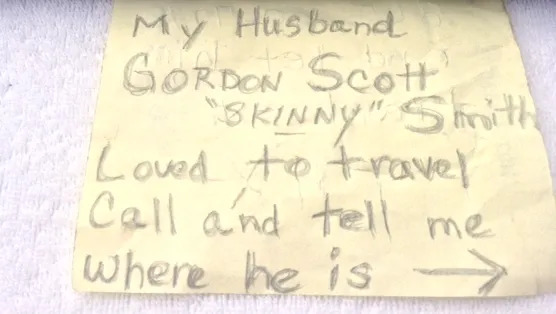 My Husband
GORDON Scott
"SKINNY" Smith
Loved to travel
Call and tell me
where he is →